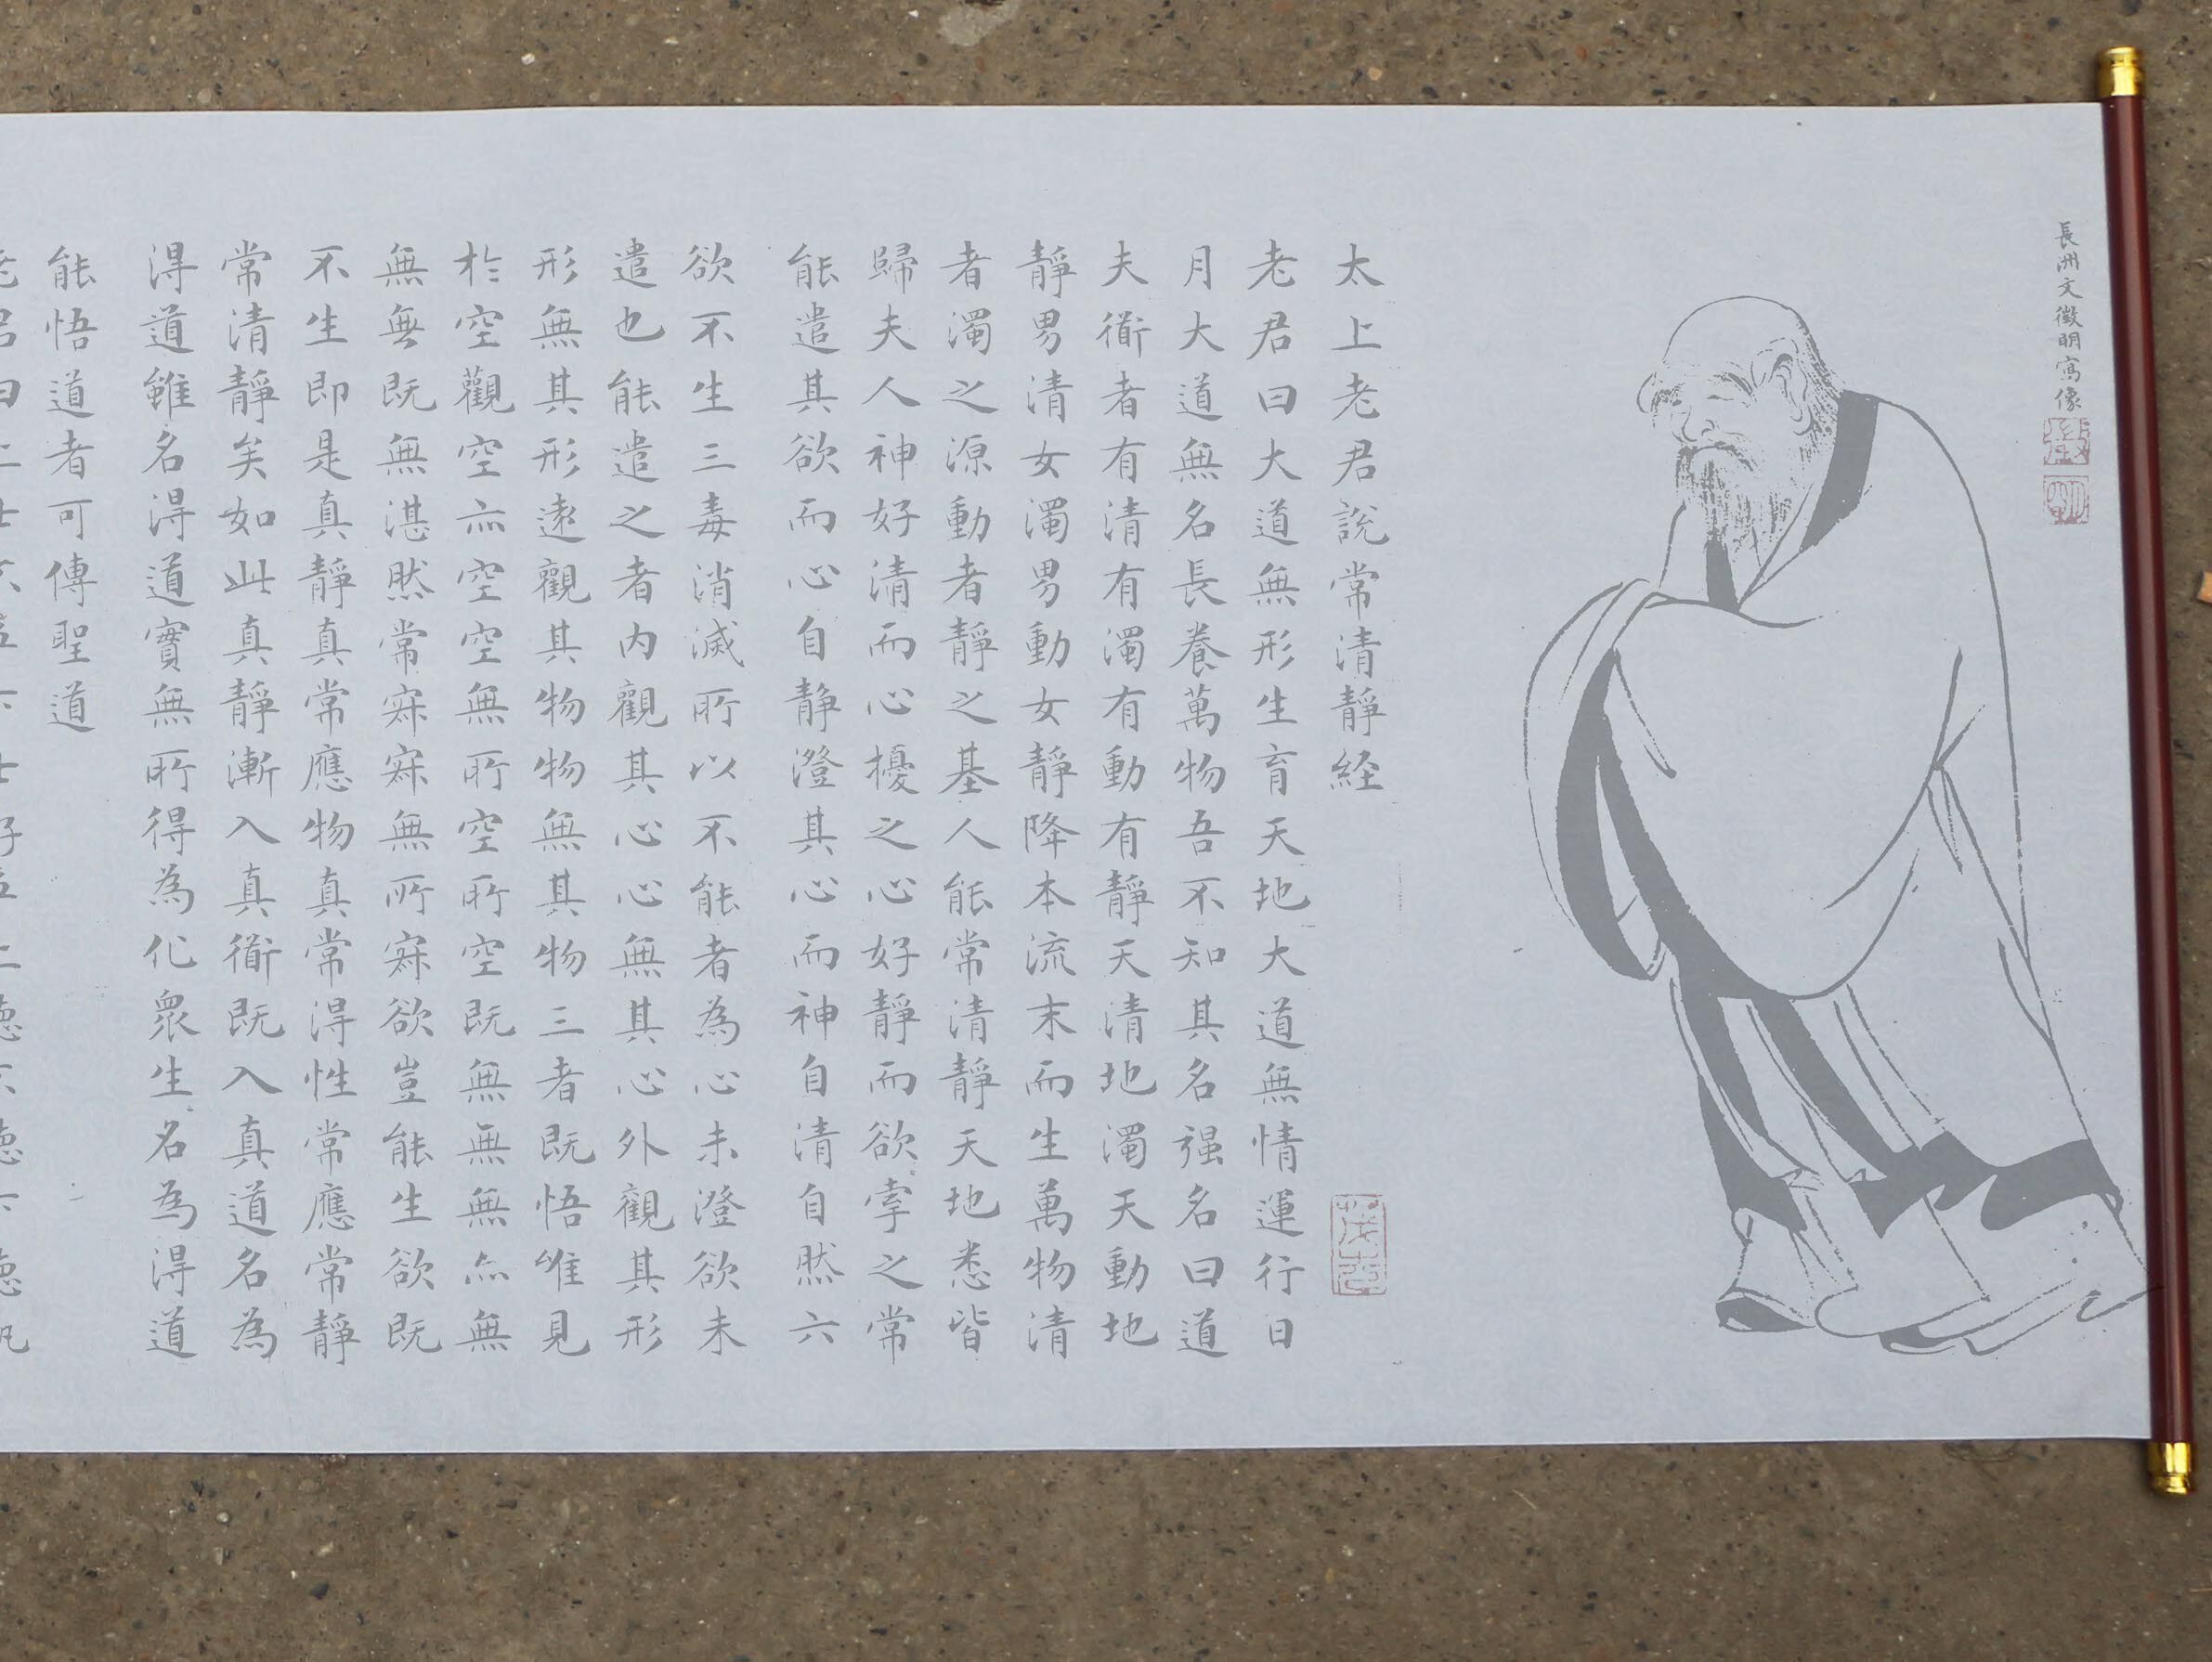 長洲文徵明寫像
太上老君說常清靜経
老君曰大道無形生育天地大道無情運行日
月大道無名長養萬物吾不知其名强名曰道
夫衜者有清有濁有動有靜天清地濁天動地
靜男清女濁男動女靜降本流末而生萬物清
者濁之源動者靜之基人能常清靜天地悉皆
歸夫人神好清而心擾之心好靜而欲牽之常
能遣其欲而心自静澄其心而神自清自然六
欲不生三毒消滅所以不能者為心未澄欲未
遣也能遣之者内觀其心心無其心外觀其形
形無其形遠觀其物物無其物三者既悟唯見
於空觀空亦空空無所空所空既無無無亦無
無無既無湛然常寂寂無所寂欲豈能生欲既
不生即是真靜真常應物真常得性常應常靜
常清靜矣如此真靜漸入真衜既入真道名為
得道雖名得道實無所得為化衆生名為得道
能悟道者可傳聖道